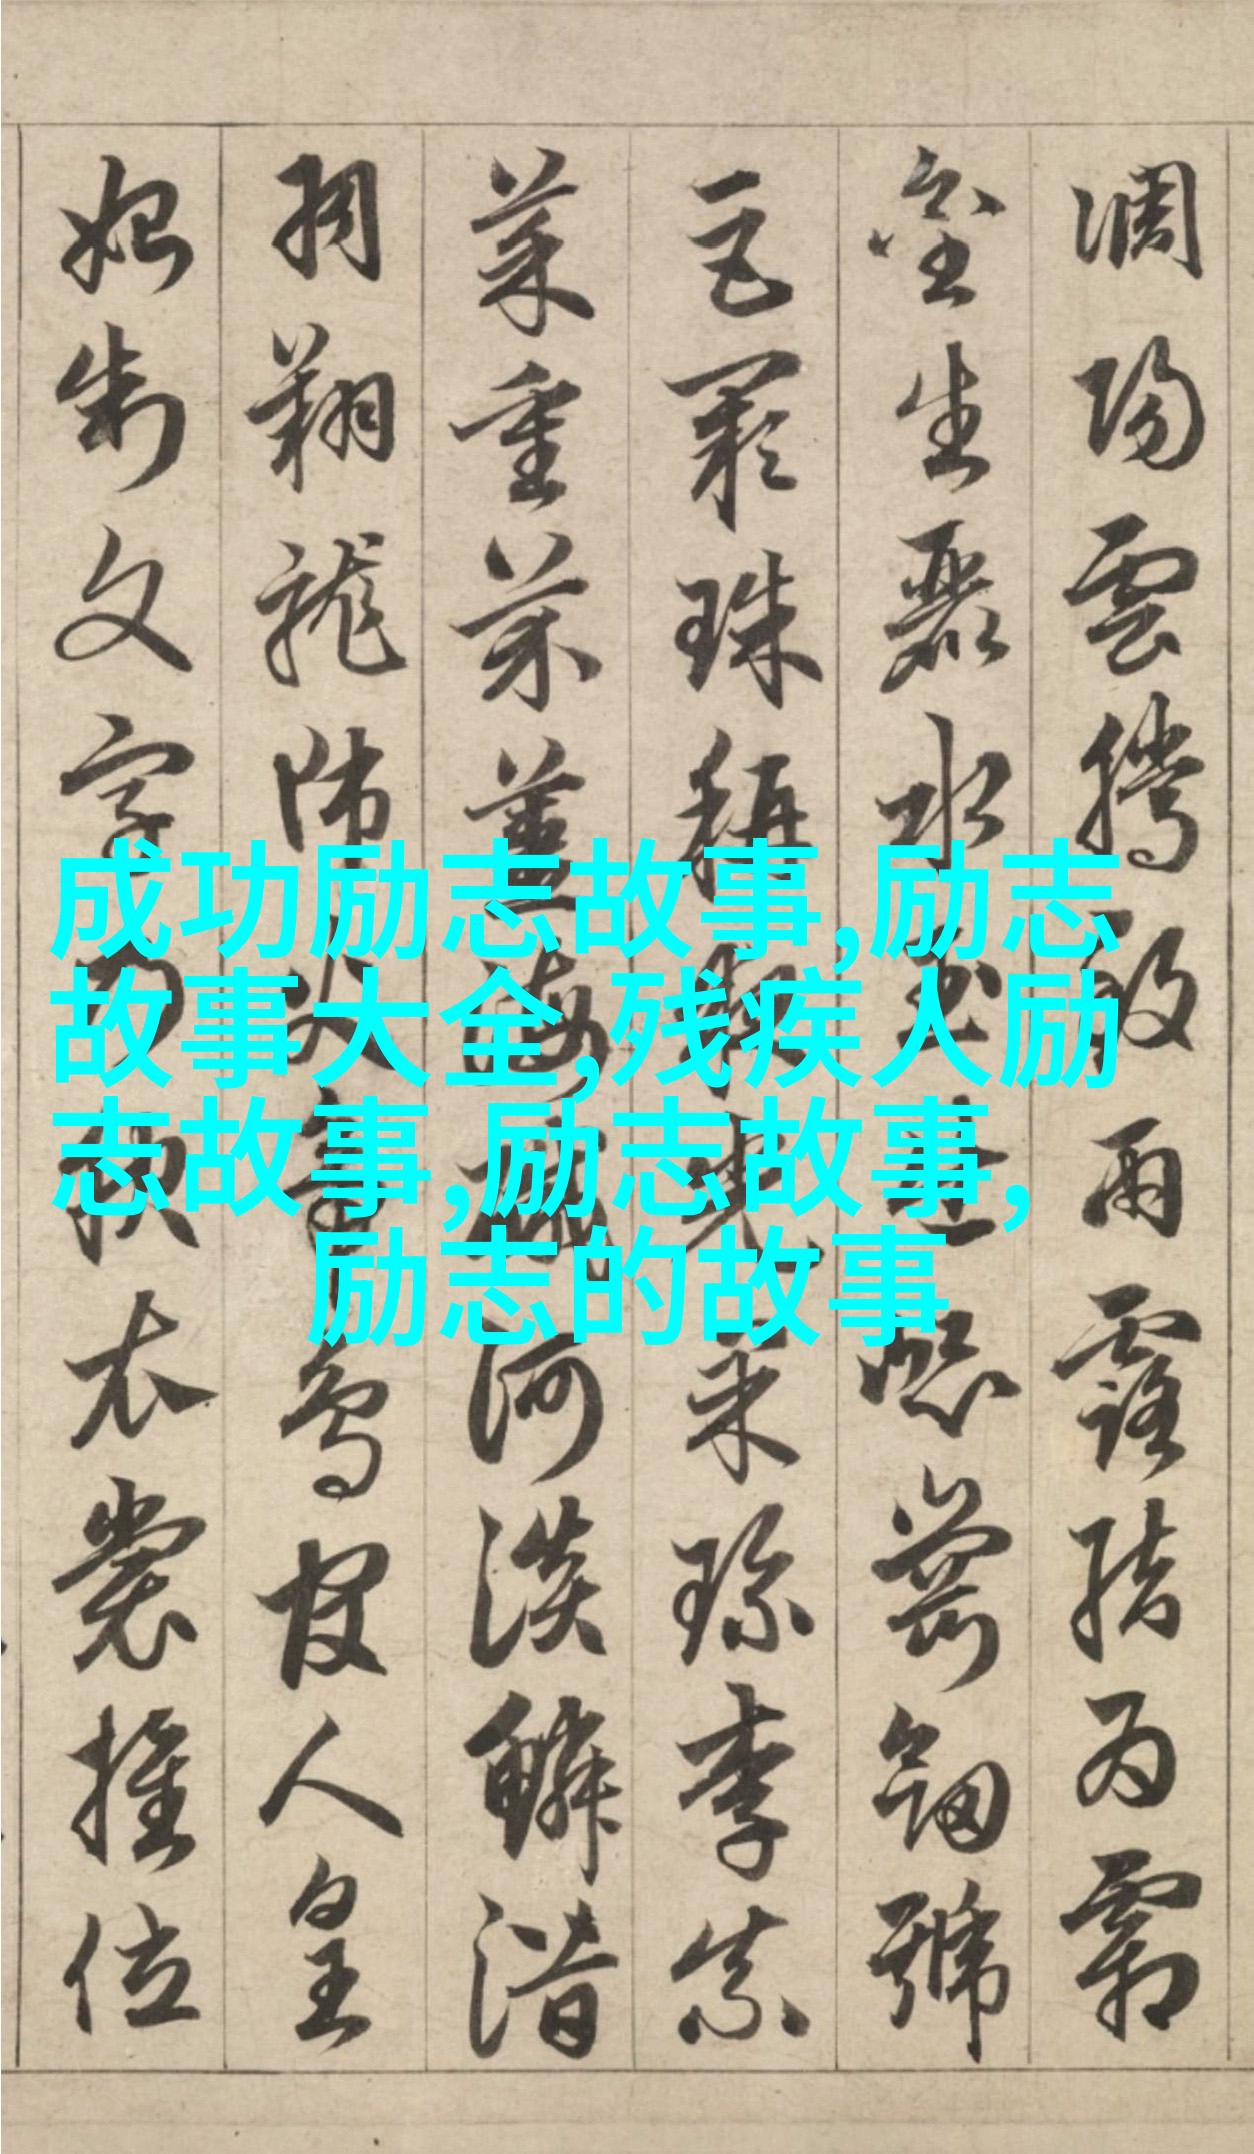 成功励志故事,励志
故事大全,残疾人励
志故事,励志故事,
励志的故事
調陽雲騰致雨露結為霜
金生麗水玉出崑崗劍號
巨闕珠稱夜光菓珎李柰
菜重芥薑海鹹河淡鱗潛
羽翔龍師火帝鳥官人皇
始制文字乃服衣裳推位